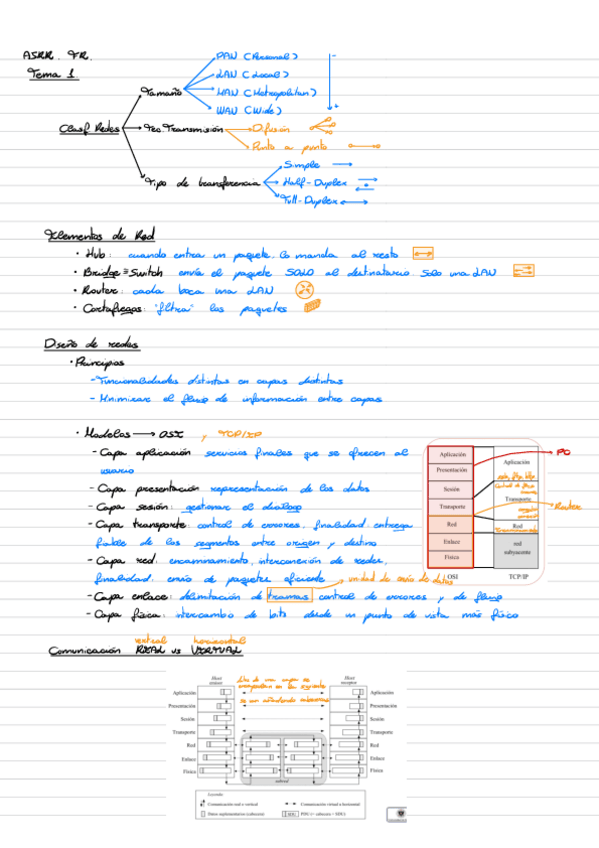 Tema 1
Clasf. Redes
Tamaño
PAN (Personal)
LAN (Local)
MAN (Metropolitan)
WAN (Wide)
Tec. Transmisión
Difusión
Punto a punto
Tipo de transferencia
Simple
Half-Duplex
Full-Duplex
Elementos de Red
· Hub: cuando entra un paquete, lo manda al resto
· Bridge ≡ Switch envía el paquete SOLO al destinatario. Solo una LAN
· Router: cada boca una LAN
· Cortafuegos: "filtra" los paquetes
Diseño de redes
· Principios
- Funcionalidades distintas en capas distintas
- Minimizar el flujo de información entre capas
· Modelos → OSI y TCP/IP
- Capa aplicación servicios finales que se ofrecen al
usuario
- Capa presentación representación de los datos
- Capa sesión: gestionar el dialogo
- Capa transporte: control de errores, finalidad: entrega
fiable de los segmentos entre origen y destino
- Capa red: encaminamiento, interconexión de redes,
finalidad: envío de paquetes eficiente
unidad de envío de datos
- Capa enlace: delimitación de tramas control de errores y de flujo
- Capa física: intercambio de bits desde un punto de vista más físico
Aplicación
Presentación
Sesión
Transporte
Red
Enlace
Física
OSI
Aplicación
Transporte
Red
red
subyacente
TCP/IP
PC
Router
vertical horizontal
Comunicación REAL vs VIRTUAL
Host
emisor
Host
receptor
Aplicación
Presentación
Sesión
Transporte
Red
Enlace
Física
subred
Aplicación
Presentación
Sesión
Transporte
Red
Enlace
Física
Leyenda:
Comunicación real o vertical
Comunicación virtual u horizontal
Datos suplementarios (cabecera)
PDU (= cabecera + SDU)